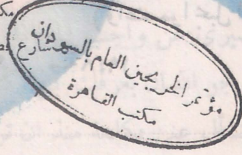 مؤتمر الخريجين العام بالسودان
مكتب القاهرة
شارع